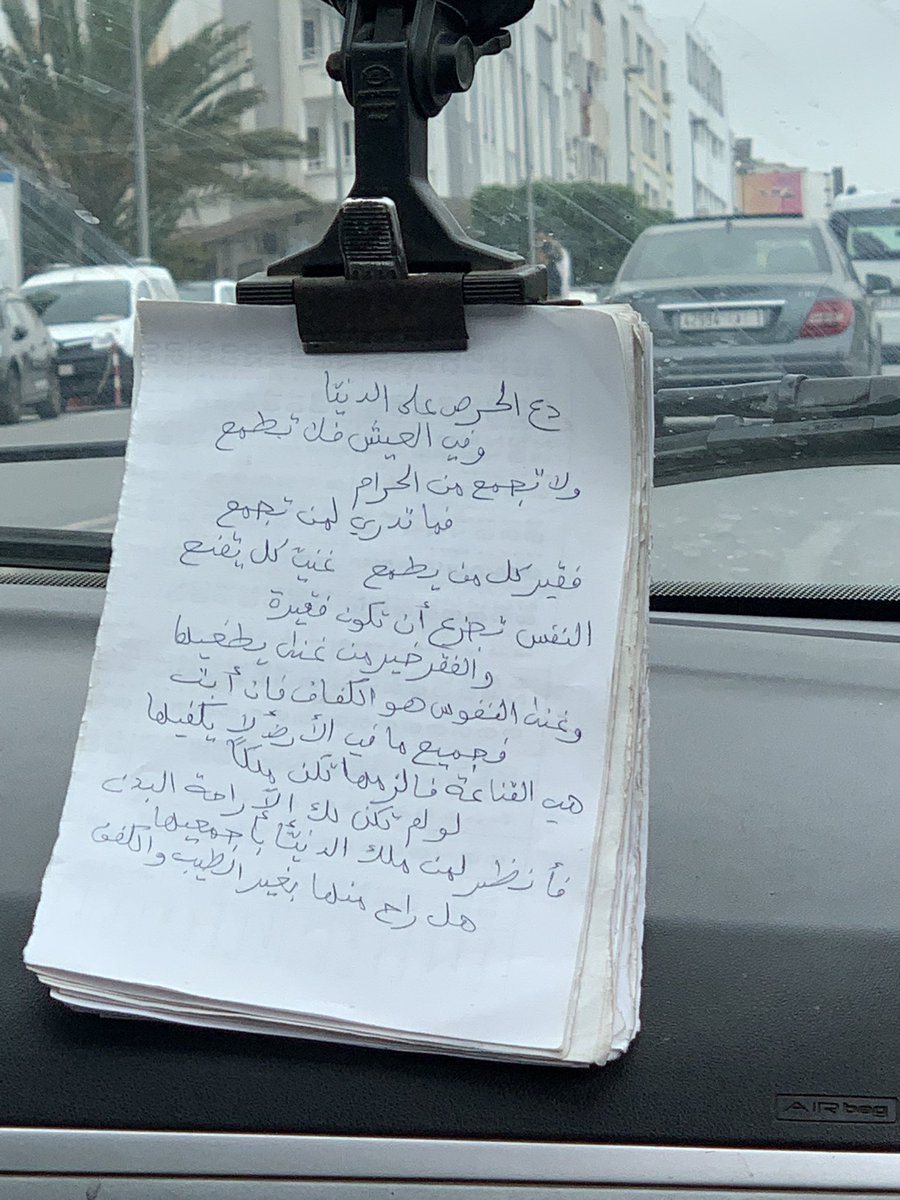 دع الحرص على الدنيا
وفي العيش فلا تطمع
ولا تجمع من الحرام
فما تدري لمن تجمع
فقير كل من يطمع غني كل يقنع
النفس تجزع أن تكون فقيرة
والفقر خير من غنى يطغيها
وغنى النفوس هو الكفاف فإن أبت
فجميع ما في الأرض لا يكفيها
هي القناعة فالزمها تكن ملكاً
لو لم تكن لك إلا راحة البدن
فأنظر لمن ملك الدنيا بأجمعها
هل راح منها بغير الطيب والكفن
AIRbag